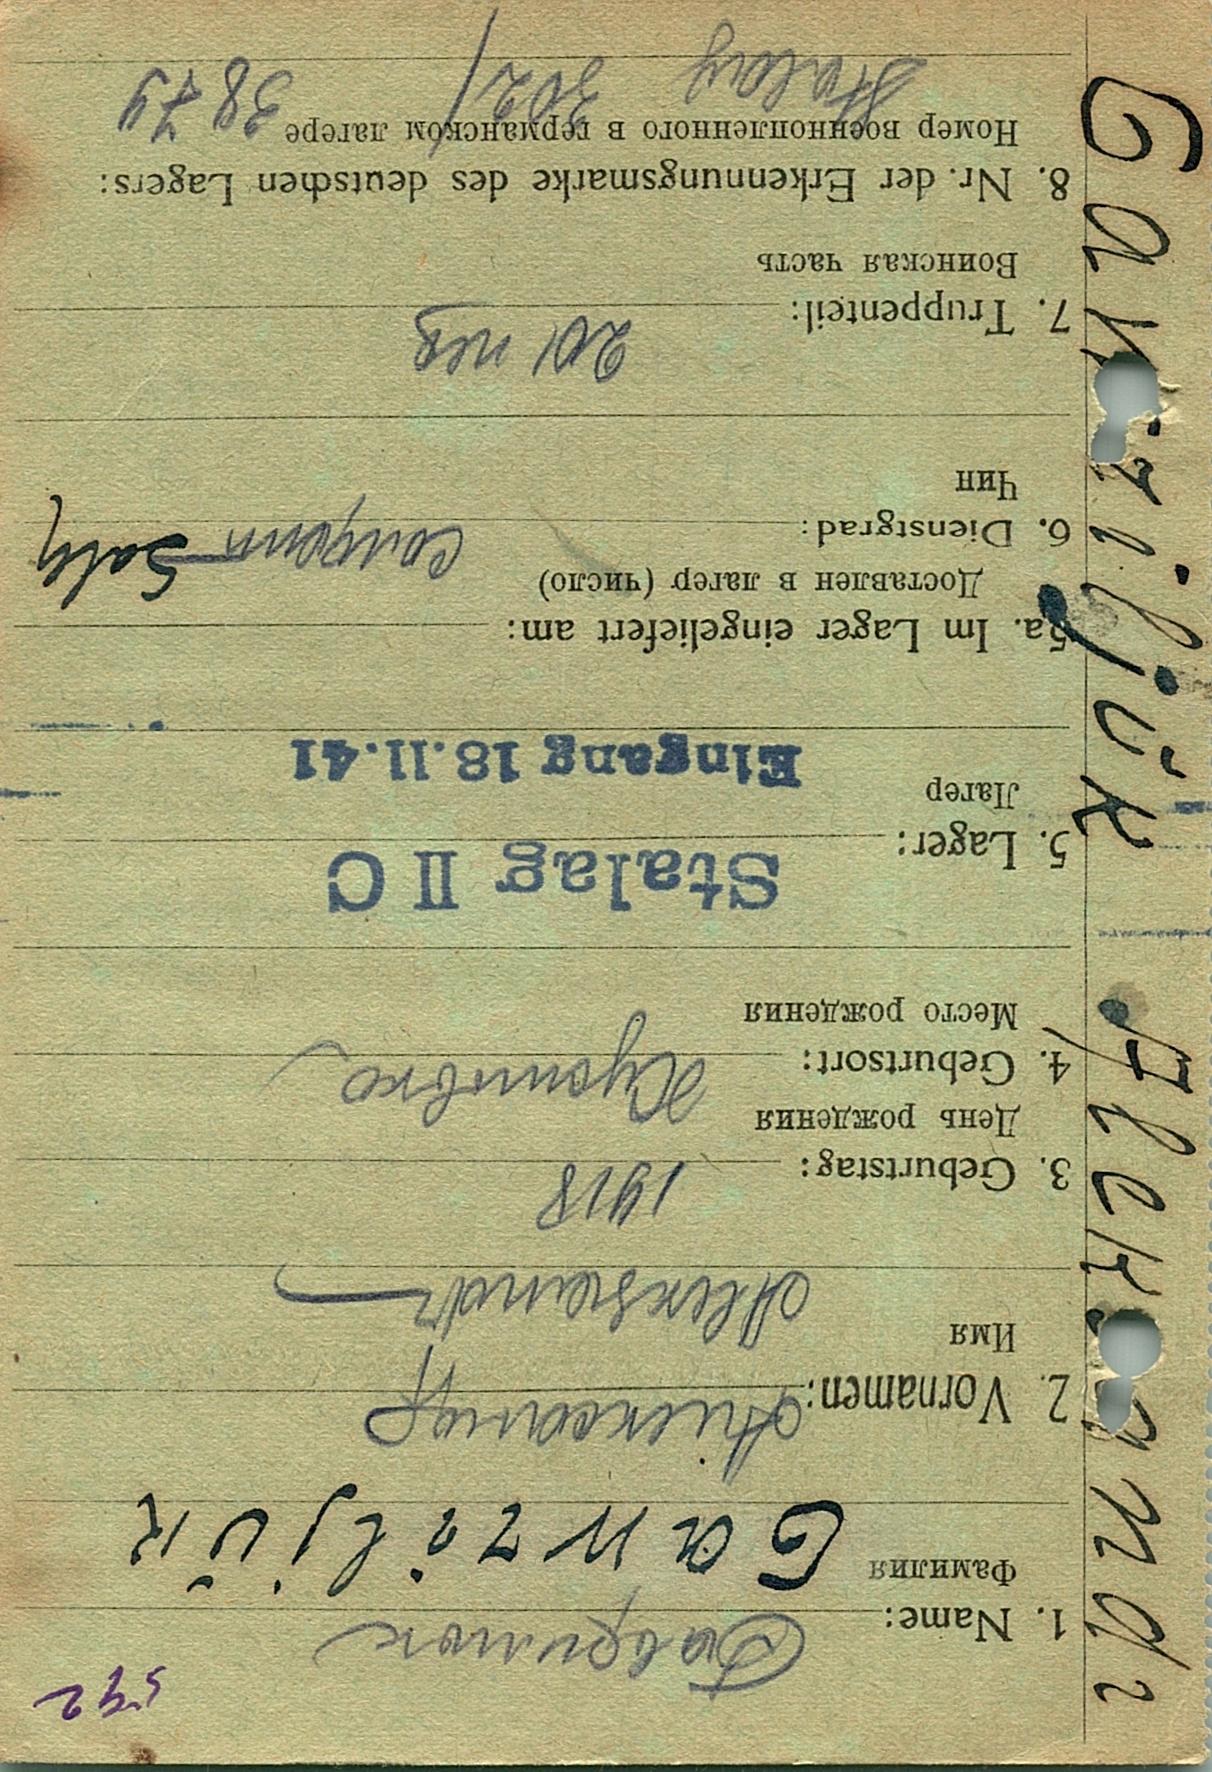 592
1. Name:
Фамилия
Gawriljūk
2. Vornamen: Александр
Имя
Alexsandr
3. Geburtstag: 1918
День рождения
4. Geburtsort:
Место рождения
5. Lager: Stalag II C
Лагер
Eingang 18.11.41
5a. Im Lager eingeliefert am:
Доставлен в лагер (число)
6. Dienstgrad: Sold
Чин
7. Truppenteil: 201
Воинская часть
8. Nr. der Erkennungsmarke des deutschen Lagers:
Номер военнопленного в германском лагере 3879
Stalag 302/
Gawriljūk Alexandr